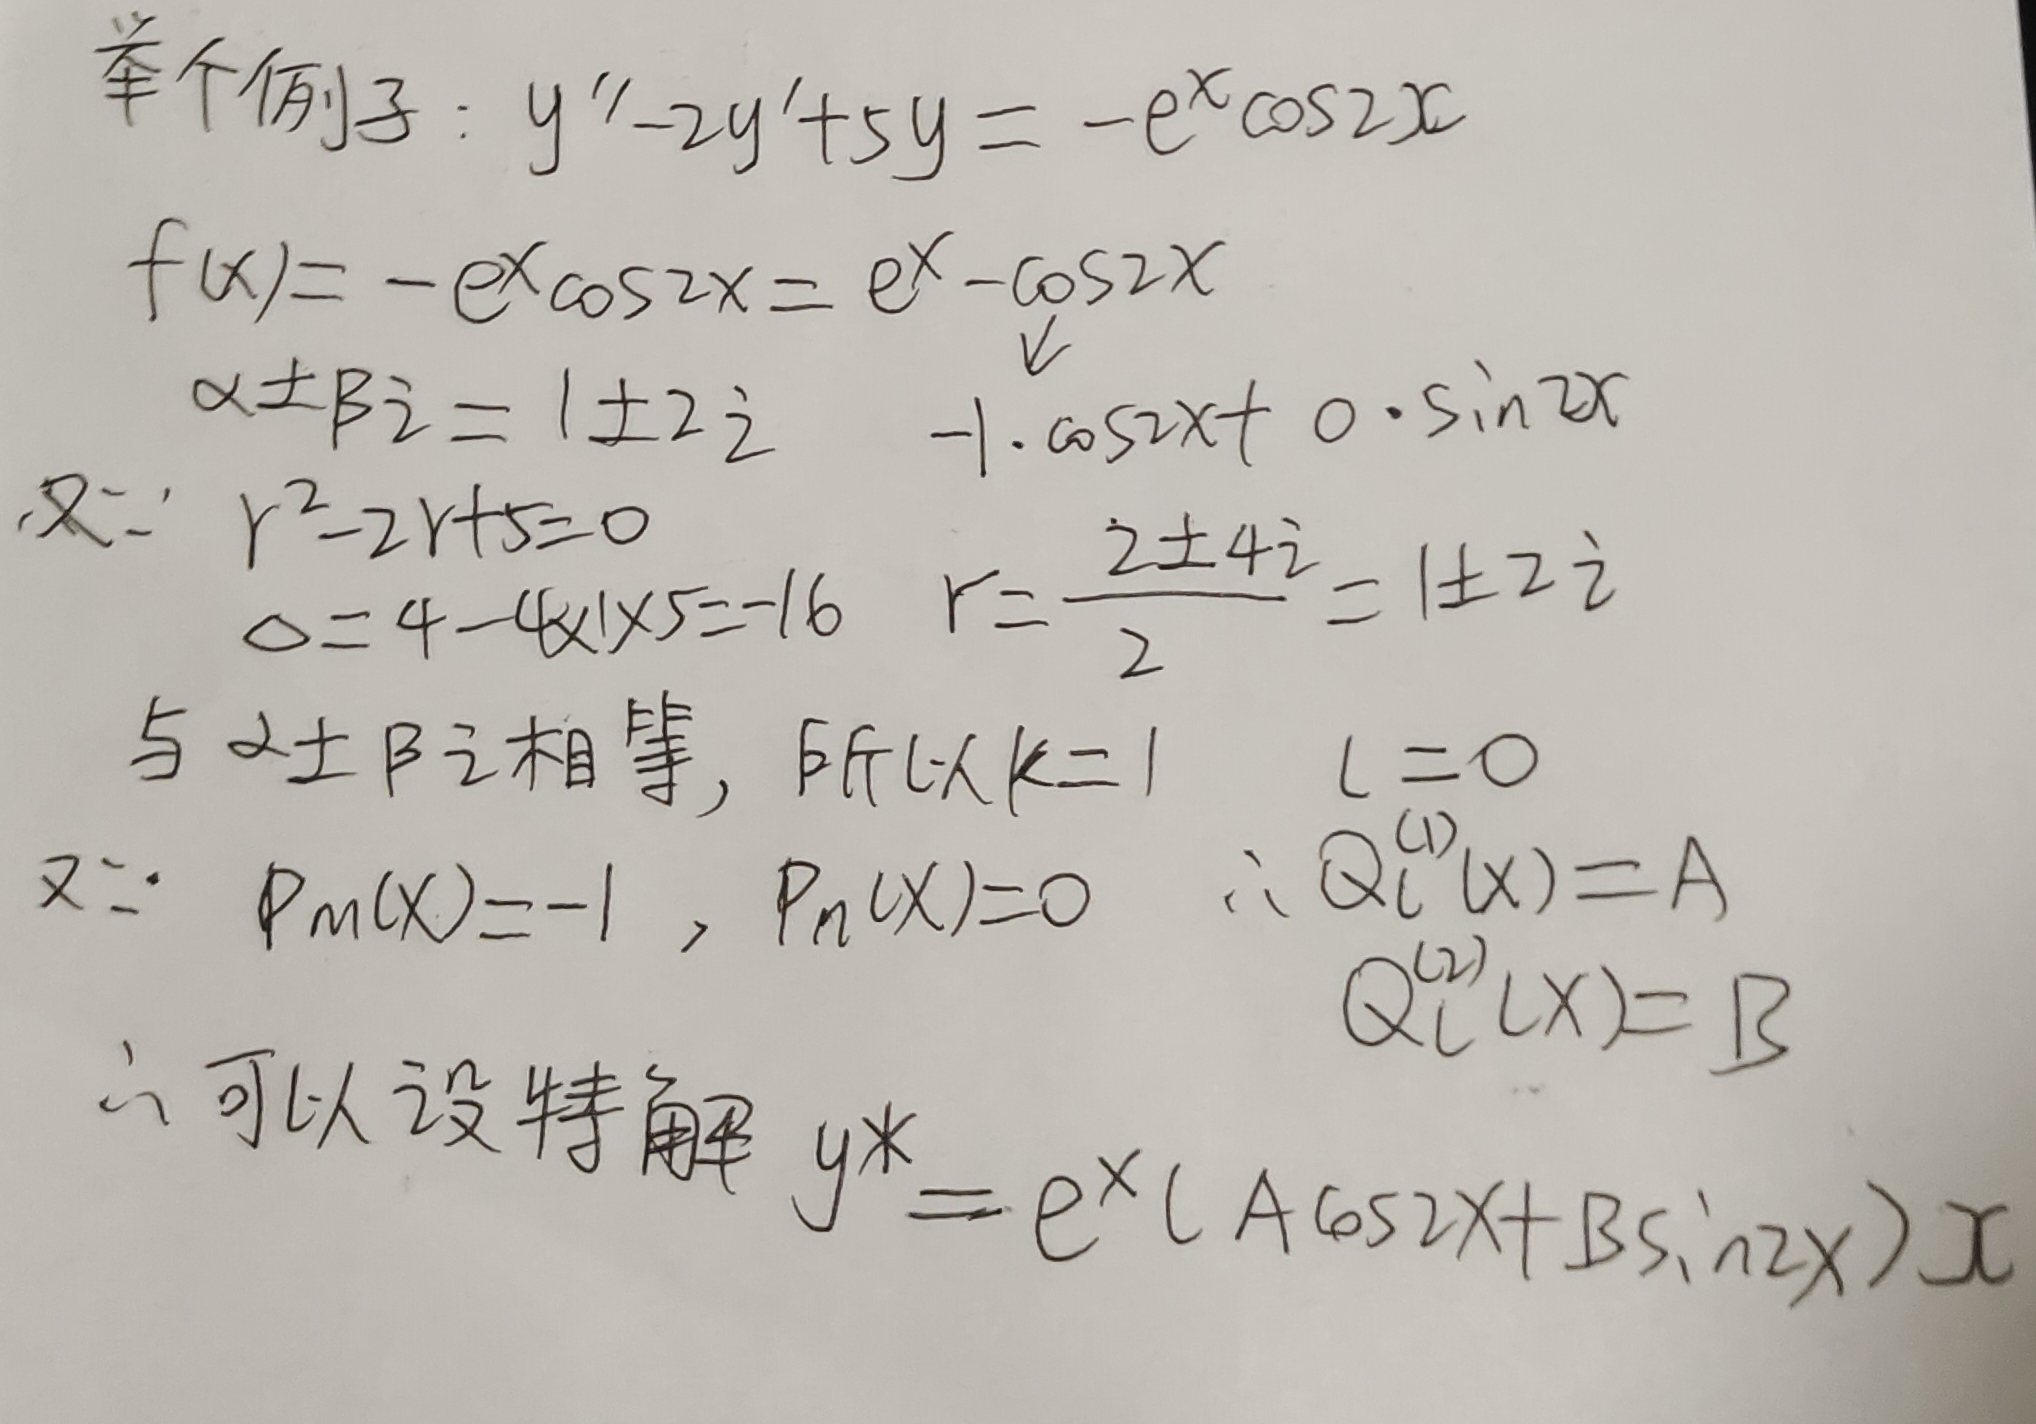 举个例子：y''-2y'+5y=-eˣcos2x
f(x)=-eˣcos2x=eˣ-cos2x
↓
α±βi=1±2i -1·cos2x+0·sin2x
又∵ r²-2r+5=0
△=4-4×1×5=-16 r=(2±4i)/2=1±2i
与α±βi相等，所以k=1 l=0
又∵ Pm(x)=-1，Pn(x)=0 ∴Ql⁽¹⁾(x)=A
Ql⁽²⁾(x)=B
∴可以设特解 y*=eˣ(Acos2x+Bsin2x)x